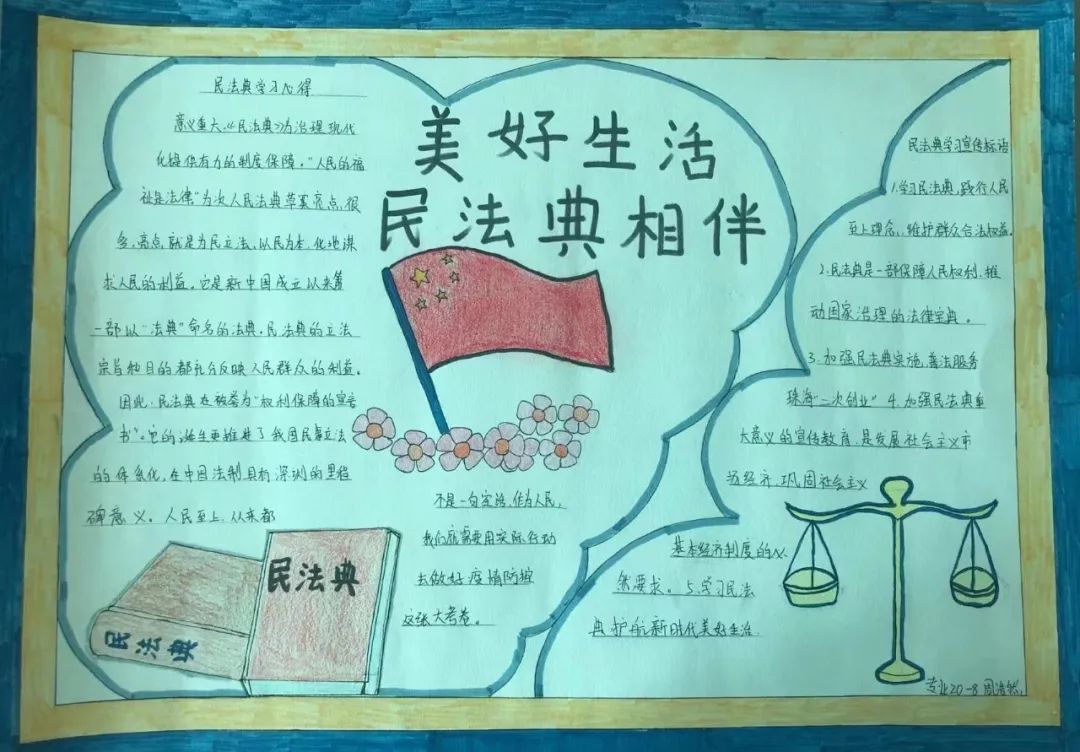 美好生活
民法典相伴
民法典学习心得
意义重大,《民法典》为治理现代
化提供有力的制度保障。"人民的福
祉是法律"为次人民法典草案亮点,很
多,亮点就是为民立法,以民为本,化地谋
求人民的利益。它是新中国成立以来第
一部以"法典"命名的法典,民法典的立法
宗旨和目的都充分反映人民群众的利益。
因此,民法典在被誉为"权利保障的宣言
书"。它的诞生更推进了我国民事立法
的体系化,在中国法制具有深渊的里程
碑意义。人民至上,从来都
不是一句空话,作为人民,
我们就需要用实际行动
去做好疫情防控
这张大考卷。
民法典
民法典
民法典学习宣传标语
1.学习民法典,践行人民
至上理念,维护群众合法权益。
2.民法典是一部保障人民权利,推
动国家治理的法律宝典。
3.加强民法典实施,善法服务
珠海"二次创业" 4.加强民法典重
大意义的宣传教育,是发展社会主义市
场经济,巩固社会主义
基本经济制度的必
然要求。5.学习民法
典护航新时代美好生活
专业20-8 周浩然